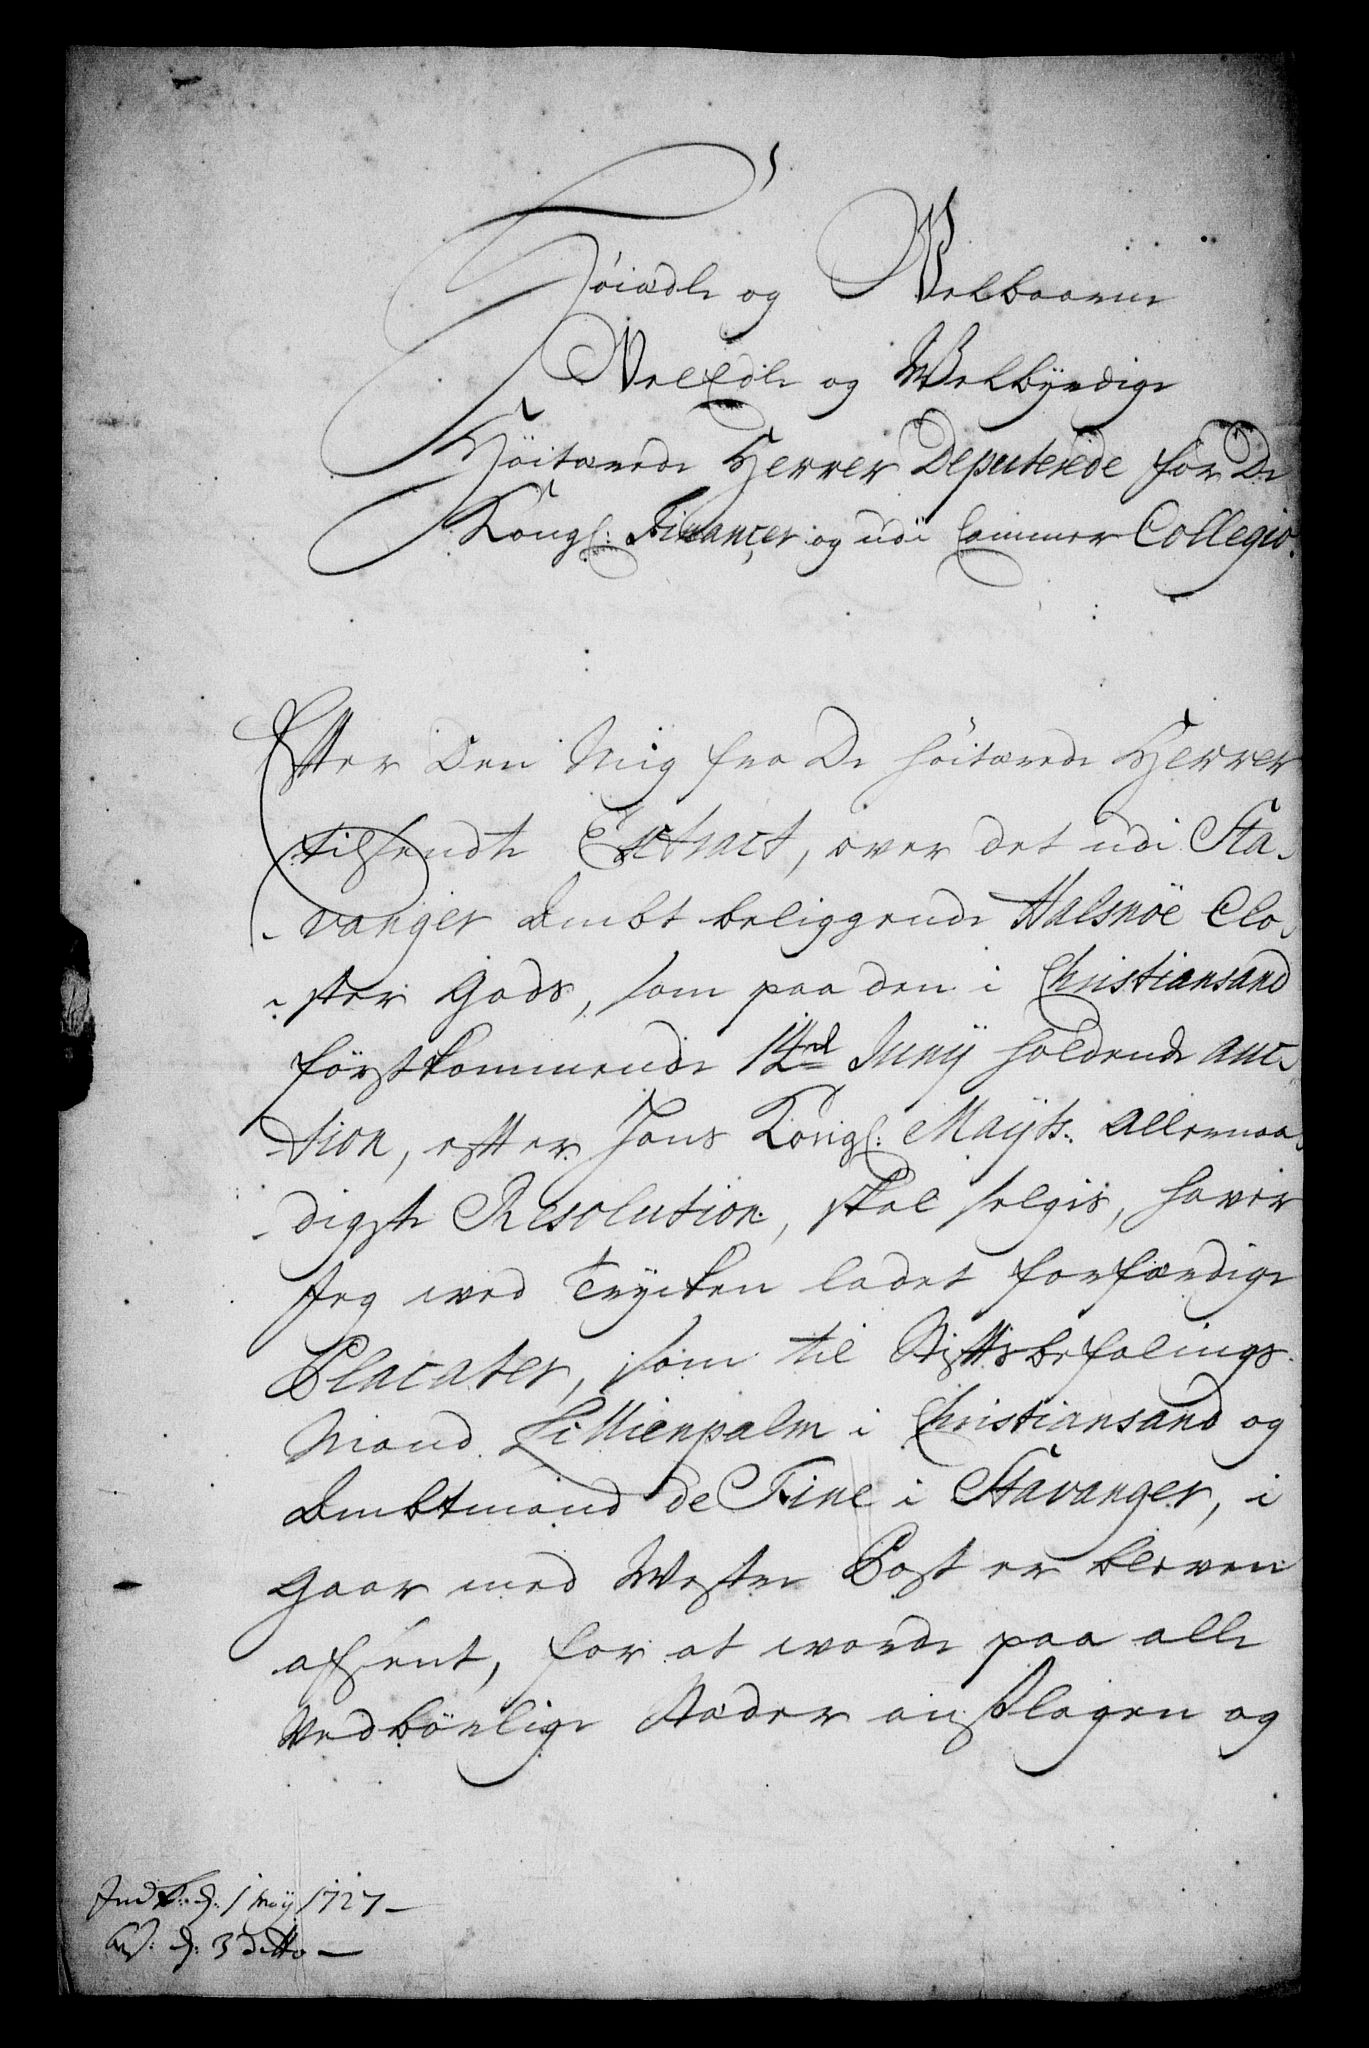 Höiædle og Velbaarne
VelEdle og Welbÿrdige
Höitærede Herrer Deputerede for De
Kongl: Financer og udi Cammer Collegio.
Efter Den Mig fra De höitærede Herrer
tilsendte Extract, over det udi Sta-
vanger Ambt beliggende Halsnöe Clo-
ster Gods, som paa den i Christiansand
förstkommende 14de Junÿ holdende auc-
tion, efter Hans Kongl: Maÿts: allernaa-
digste Resolution, skal selgis, haver
Jeg ved Trÿcken ladet forfærdige
Placater, som til Stiftsbefalings-
Mand Lillienpalm i Christiansand og
Ambtmand de Fine i Stavanger, i
gaar med Westre Post er bleven
afsent, for at worde paa alle
vedbörlige Stæder anslagen og
Ind k: d: 1 Maÿ 1727
d: 3 ditto